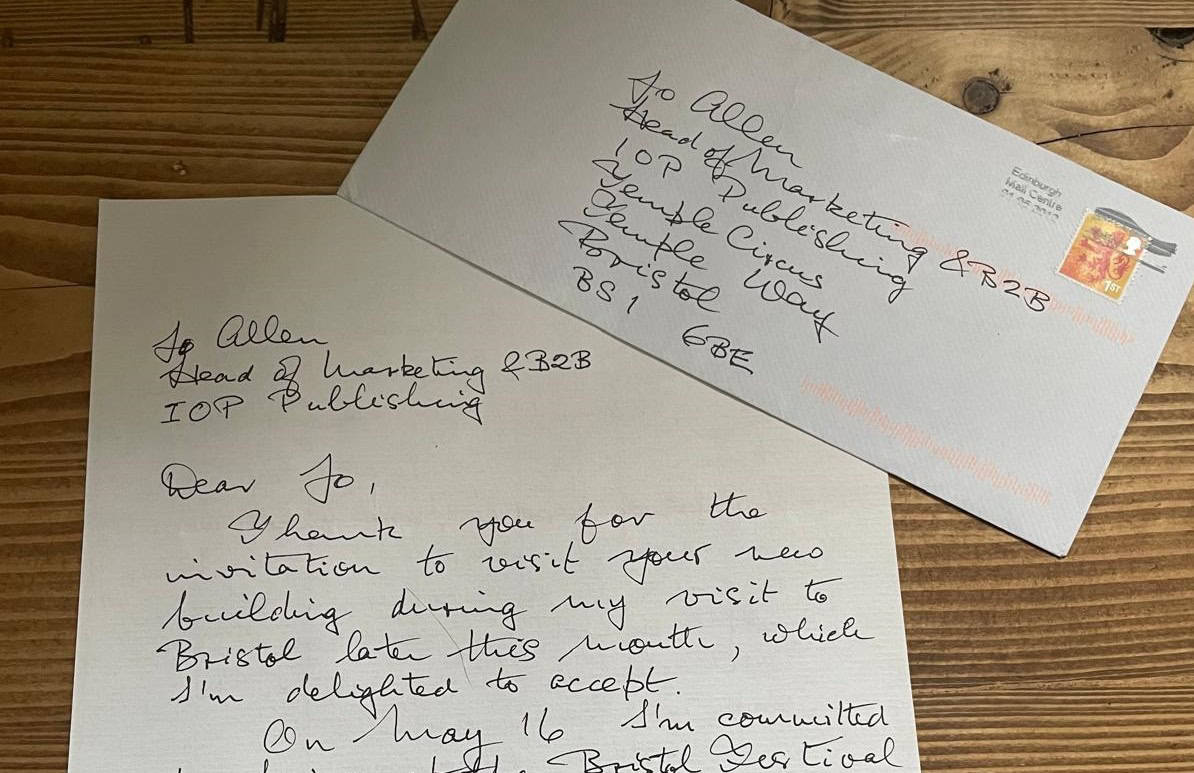 Jo Allen
Head of Marketing & B2B
IOP Publishing
Temple Circus
Temple Way
Bristol
BS1 6BE
Edinburgh
Mail Centre
1ST
Jo Allen
Head of Marketing & B2B
IOP Publishing
Dear Jo,
Thank you for the
invitation to visit your new
building during my visit to
Bristol later this month, which
I'm delighted to accept.
On May 16 I'm committed
Bristol Festival